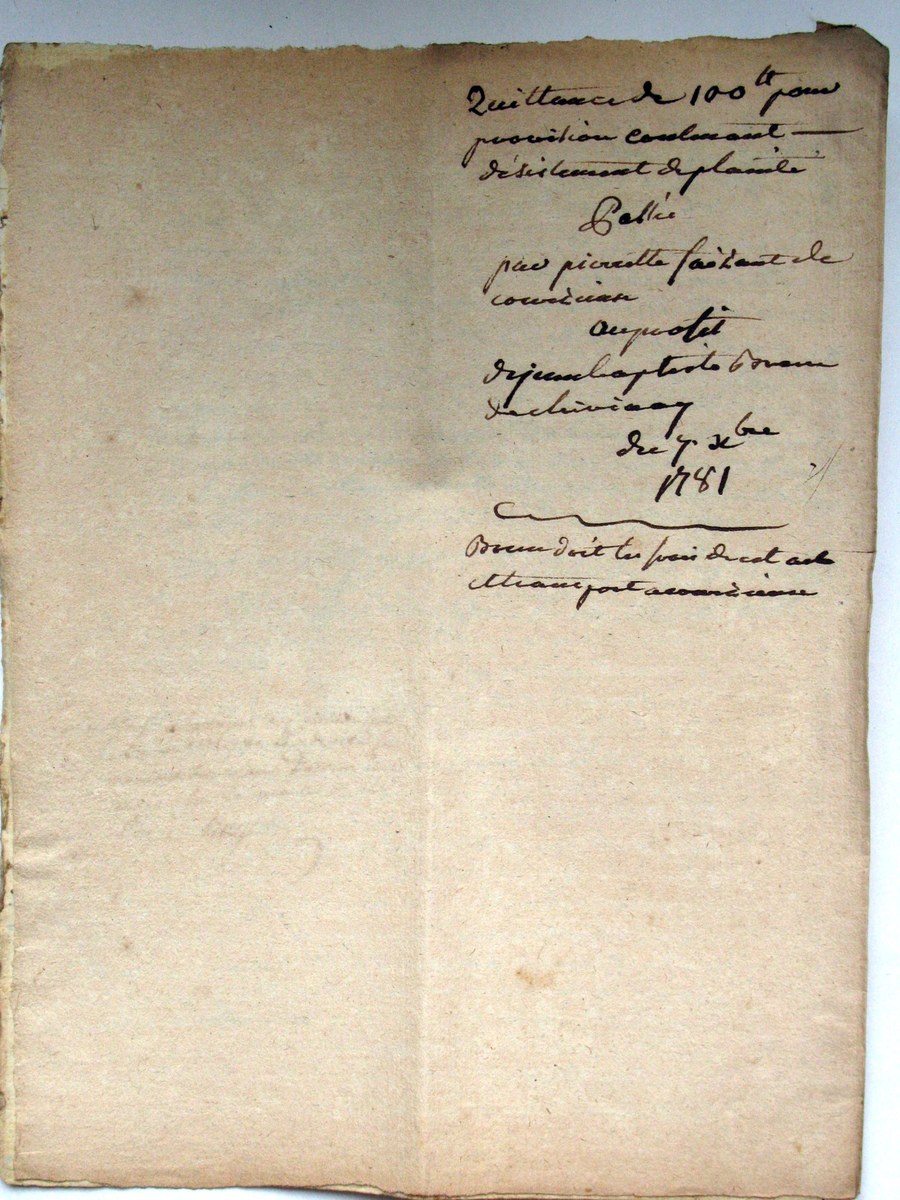 Quittance de 100tt pour
provision contenant —
désistement de plainte
Passée
par pierrette faisant de
courzieux
au profit
de jean baptiste Brun
de chevinay
du 7 xbre
1781
Brun doit les frais de cet acte
et transport a courzieux